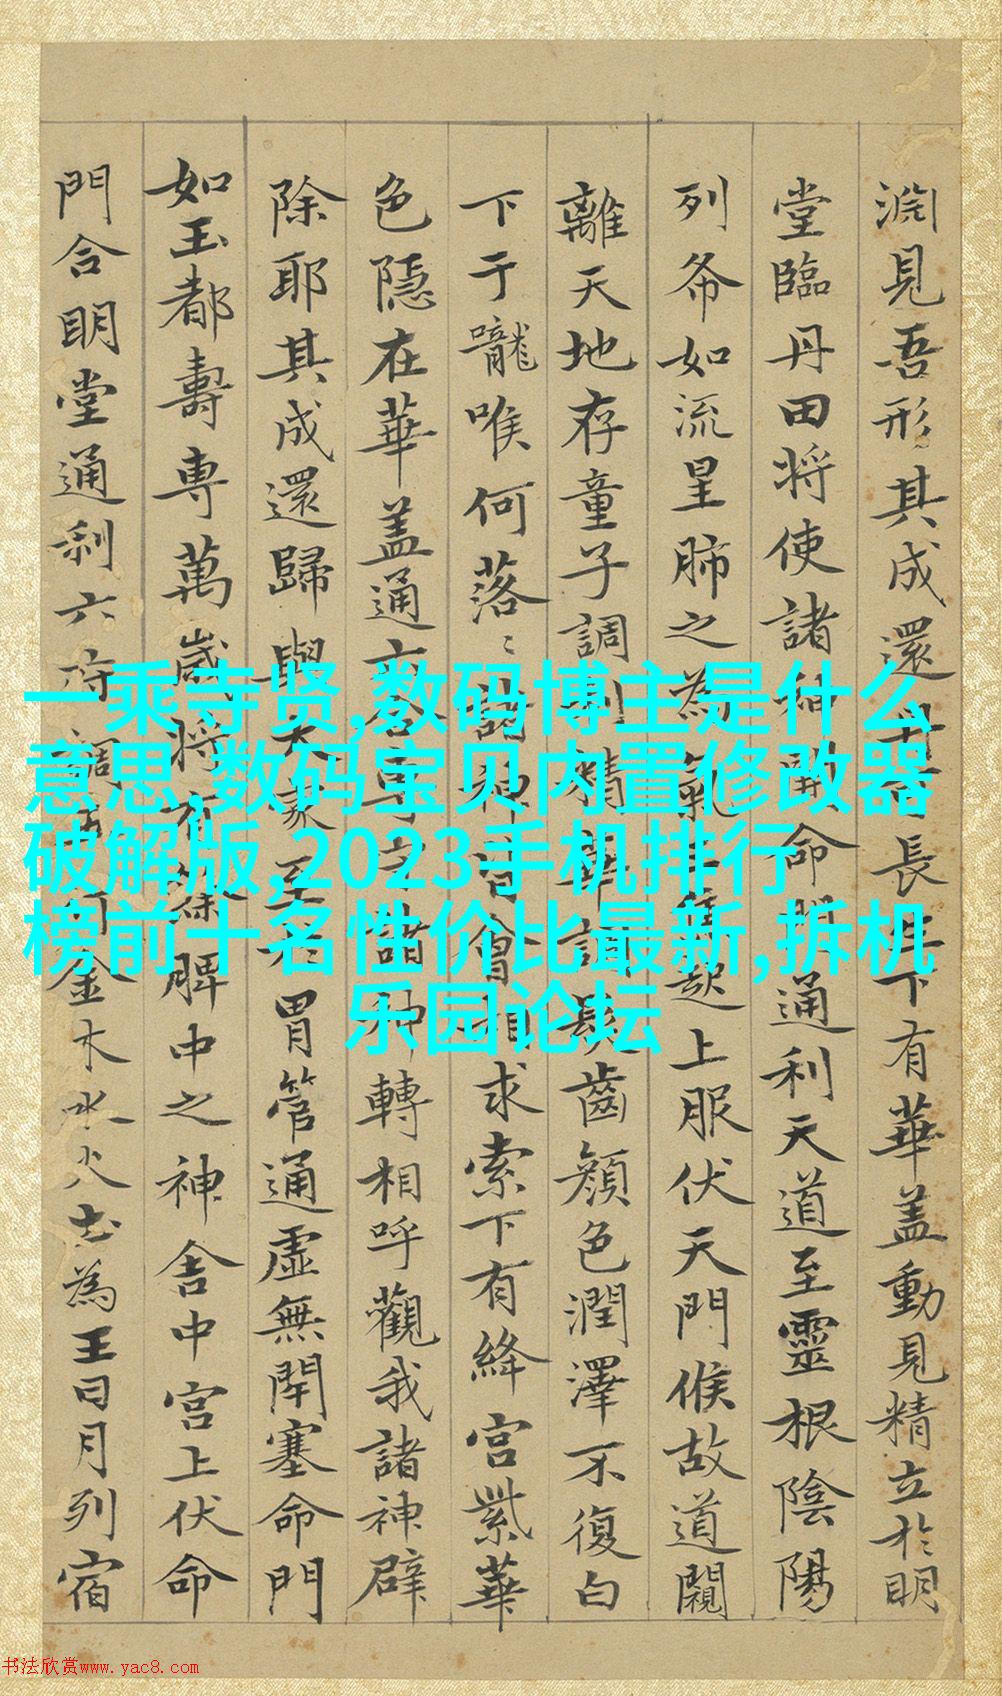 淵見吾形其成還丹可長生下有華盖動見精立於明
堂臨丹田將使諸神開命門通利天道至靈根陰陽
列布如流星肺之為氣三焦起上服伏天門候故道闚
離天地存童子調利精華調髮齒顏色潤澤不復白
下于嚨喉何落〻諸神皆會相求索下有絳宮紫華
色隱在華盖通六合專守諸神轉相呼觀我諸神辟
除耶其成還歸與大家至於胃管通虛無閉塞命門
如玉都壽專萬歲將有餘脾中之神舍中宮上伏命
門合明堂通利六府調五行金木水火土為王日月列宿
一乘寺贤,数码博主是什么
意思,数码宝贝内置修改器
破解版,2023手机排行
榜前十名性价比最新,拆机
乐园论坛
书法欣赏www.yac8.com